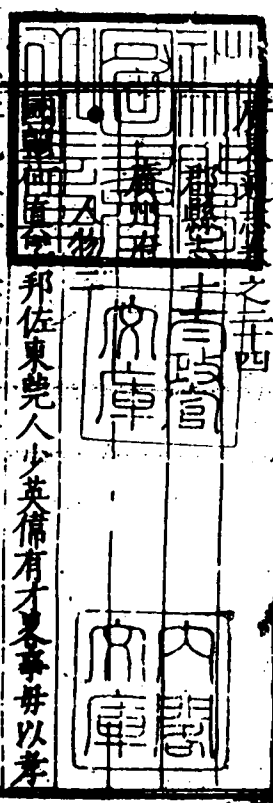 廣東通志卷之二十四
郡縣志
廣州府
人物二
國朝何真字邦佐東莞人少英偉有才畧事母以孝
太政官文庫
內閣文庫